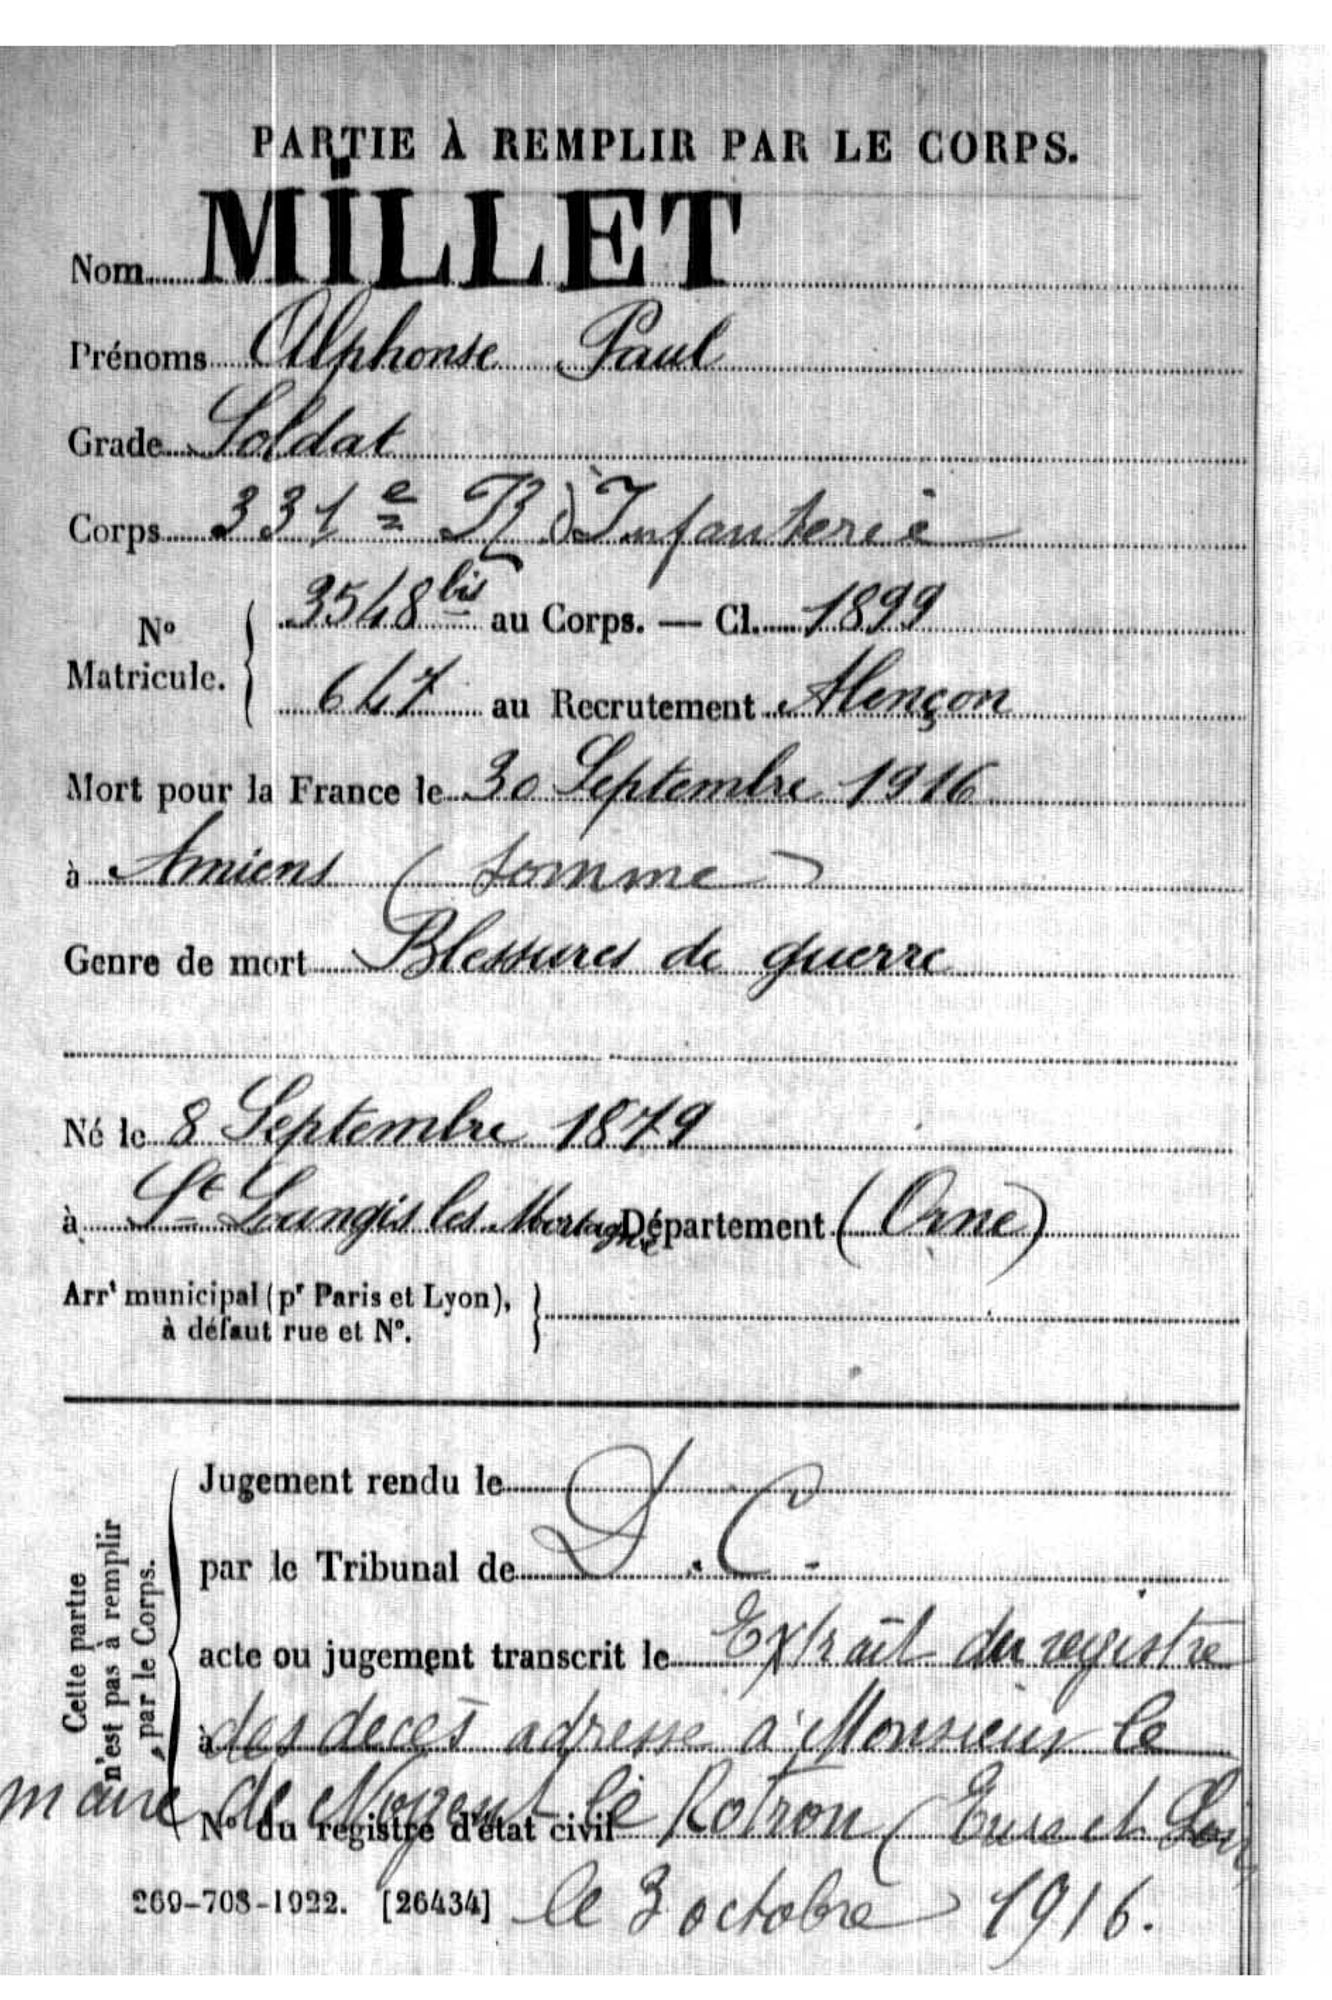 PARTIE À REMPLIR PAR LE CORPS.
Nom MILLET
Prénoms Alphonse Paul
Grade Soldat
Corps 331e R d'Infanterie
No Matricule. { 3548 bis au Corps. — Cl. 1899
647 au Recrutement Alençon
Mort pour la France le 30 Septembre 1916
à Amiens (Somme)
Genre de mort Blessures de guerre
Né le 8 Septembre 1879
à St Langis les Mortagne Département (Orne)
Arrt municipal (pr Paris et Lyon), }
à défaut rue et No.
Cette partie
n'est pas à remplir
par le Corps.
Jugement rendu le
par le Tribunal de D. C.
acte ou jugement transcrit le Extrait du registre
à des deces adresse a Monsieur le
maire de Nogent le Rotrou (Eure et Loir
No du registre d'état civil
269-708-1922. [26434] le 3 octobre 1916.